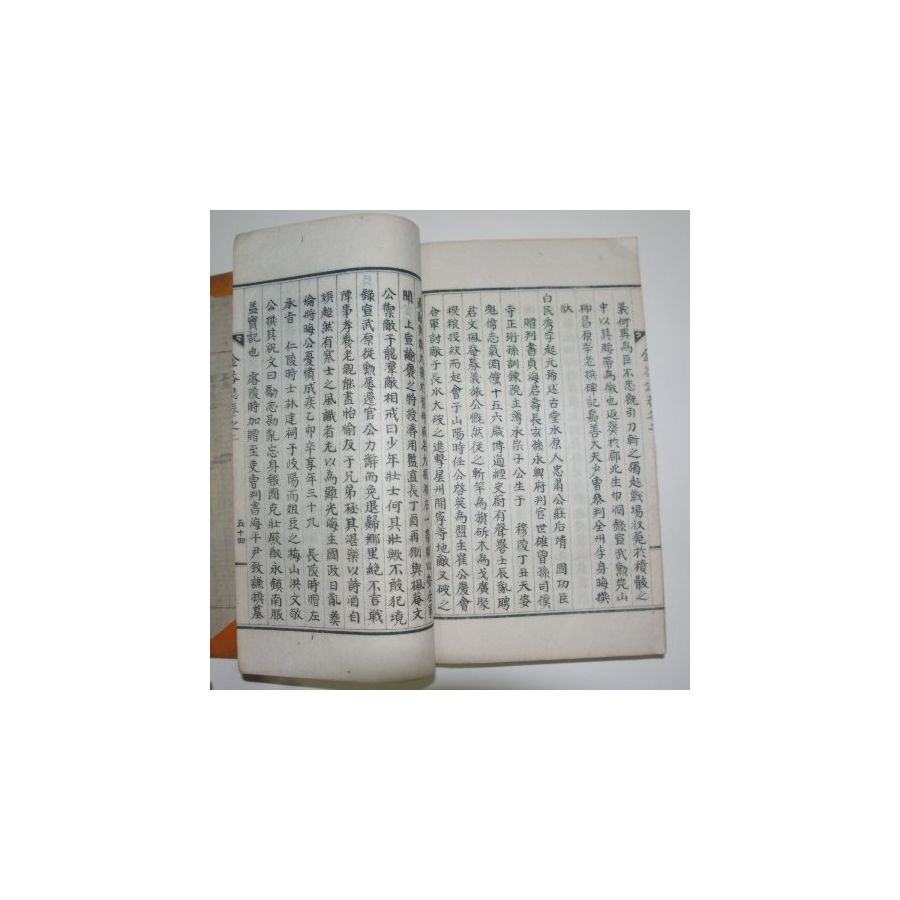 義何與爲臣不忠戲引刀斬之獨起戰場收菟於積骸之
中以其膝帶爲徵也返葬於郡北生巾洞錄宣武勲完山
柳昌原察老撰碑記嘉善大夫戶曹叅判全州李身晦撰
狀
白民秀字起元号述古堂水原人忠肅公莊后靖國功臣
贈判書貞海君壽長玄孫永興府判官世碓曾孫司僕
寺正珩孫訓鍊院主簿永宗子公生于穆陵丁丑天姿
魁偉志氣倜儻十五六歲博通經史蔚有聲譽壬辰亂聘
君文楓菴慕義旅公慨然從之斬竿爲旗斫木爲戈廣聚
授粮授欵而起會于山陽時任公啓英爲盟主崔公慶會
合軍討敵于長水大破之進擊星州開寧等地敵又破之
聞上宣諭褒之特授濟用監直長丁酉再剏與楓菴文
公禦敵于龍潭敵相戒曰少年壯士何其壯歟不敢犯境
錄宣武原從勲屢邊官公力辭而免退歸鄕里絶不言戰
陣事孝養老親能盡怡愉友于兄弟極其湛樂以詩酒自
娛超然有寒士之風識者尤以爲難光海主國政日亂彛
倫時晦公憂憤成疾乙卯卒享年三十九長陵時贈左
承旨仁陵時士林建祠于岐陽而俎豆之梅山洪文敬
公撰其祝文曰勵志勘亂忘身報國克壯嚴猷永鎭南服
盖實記也睿陵時加贈至吏曹判書海平尹致謙撰墓
五十四